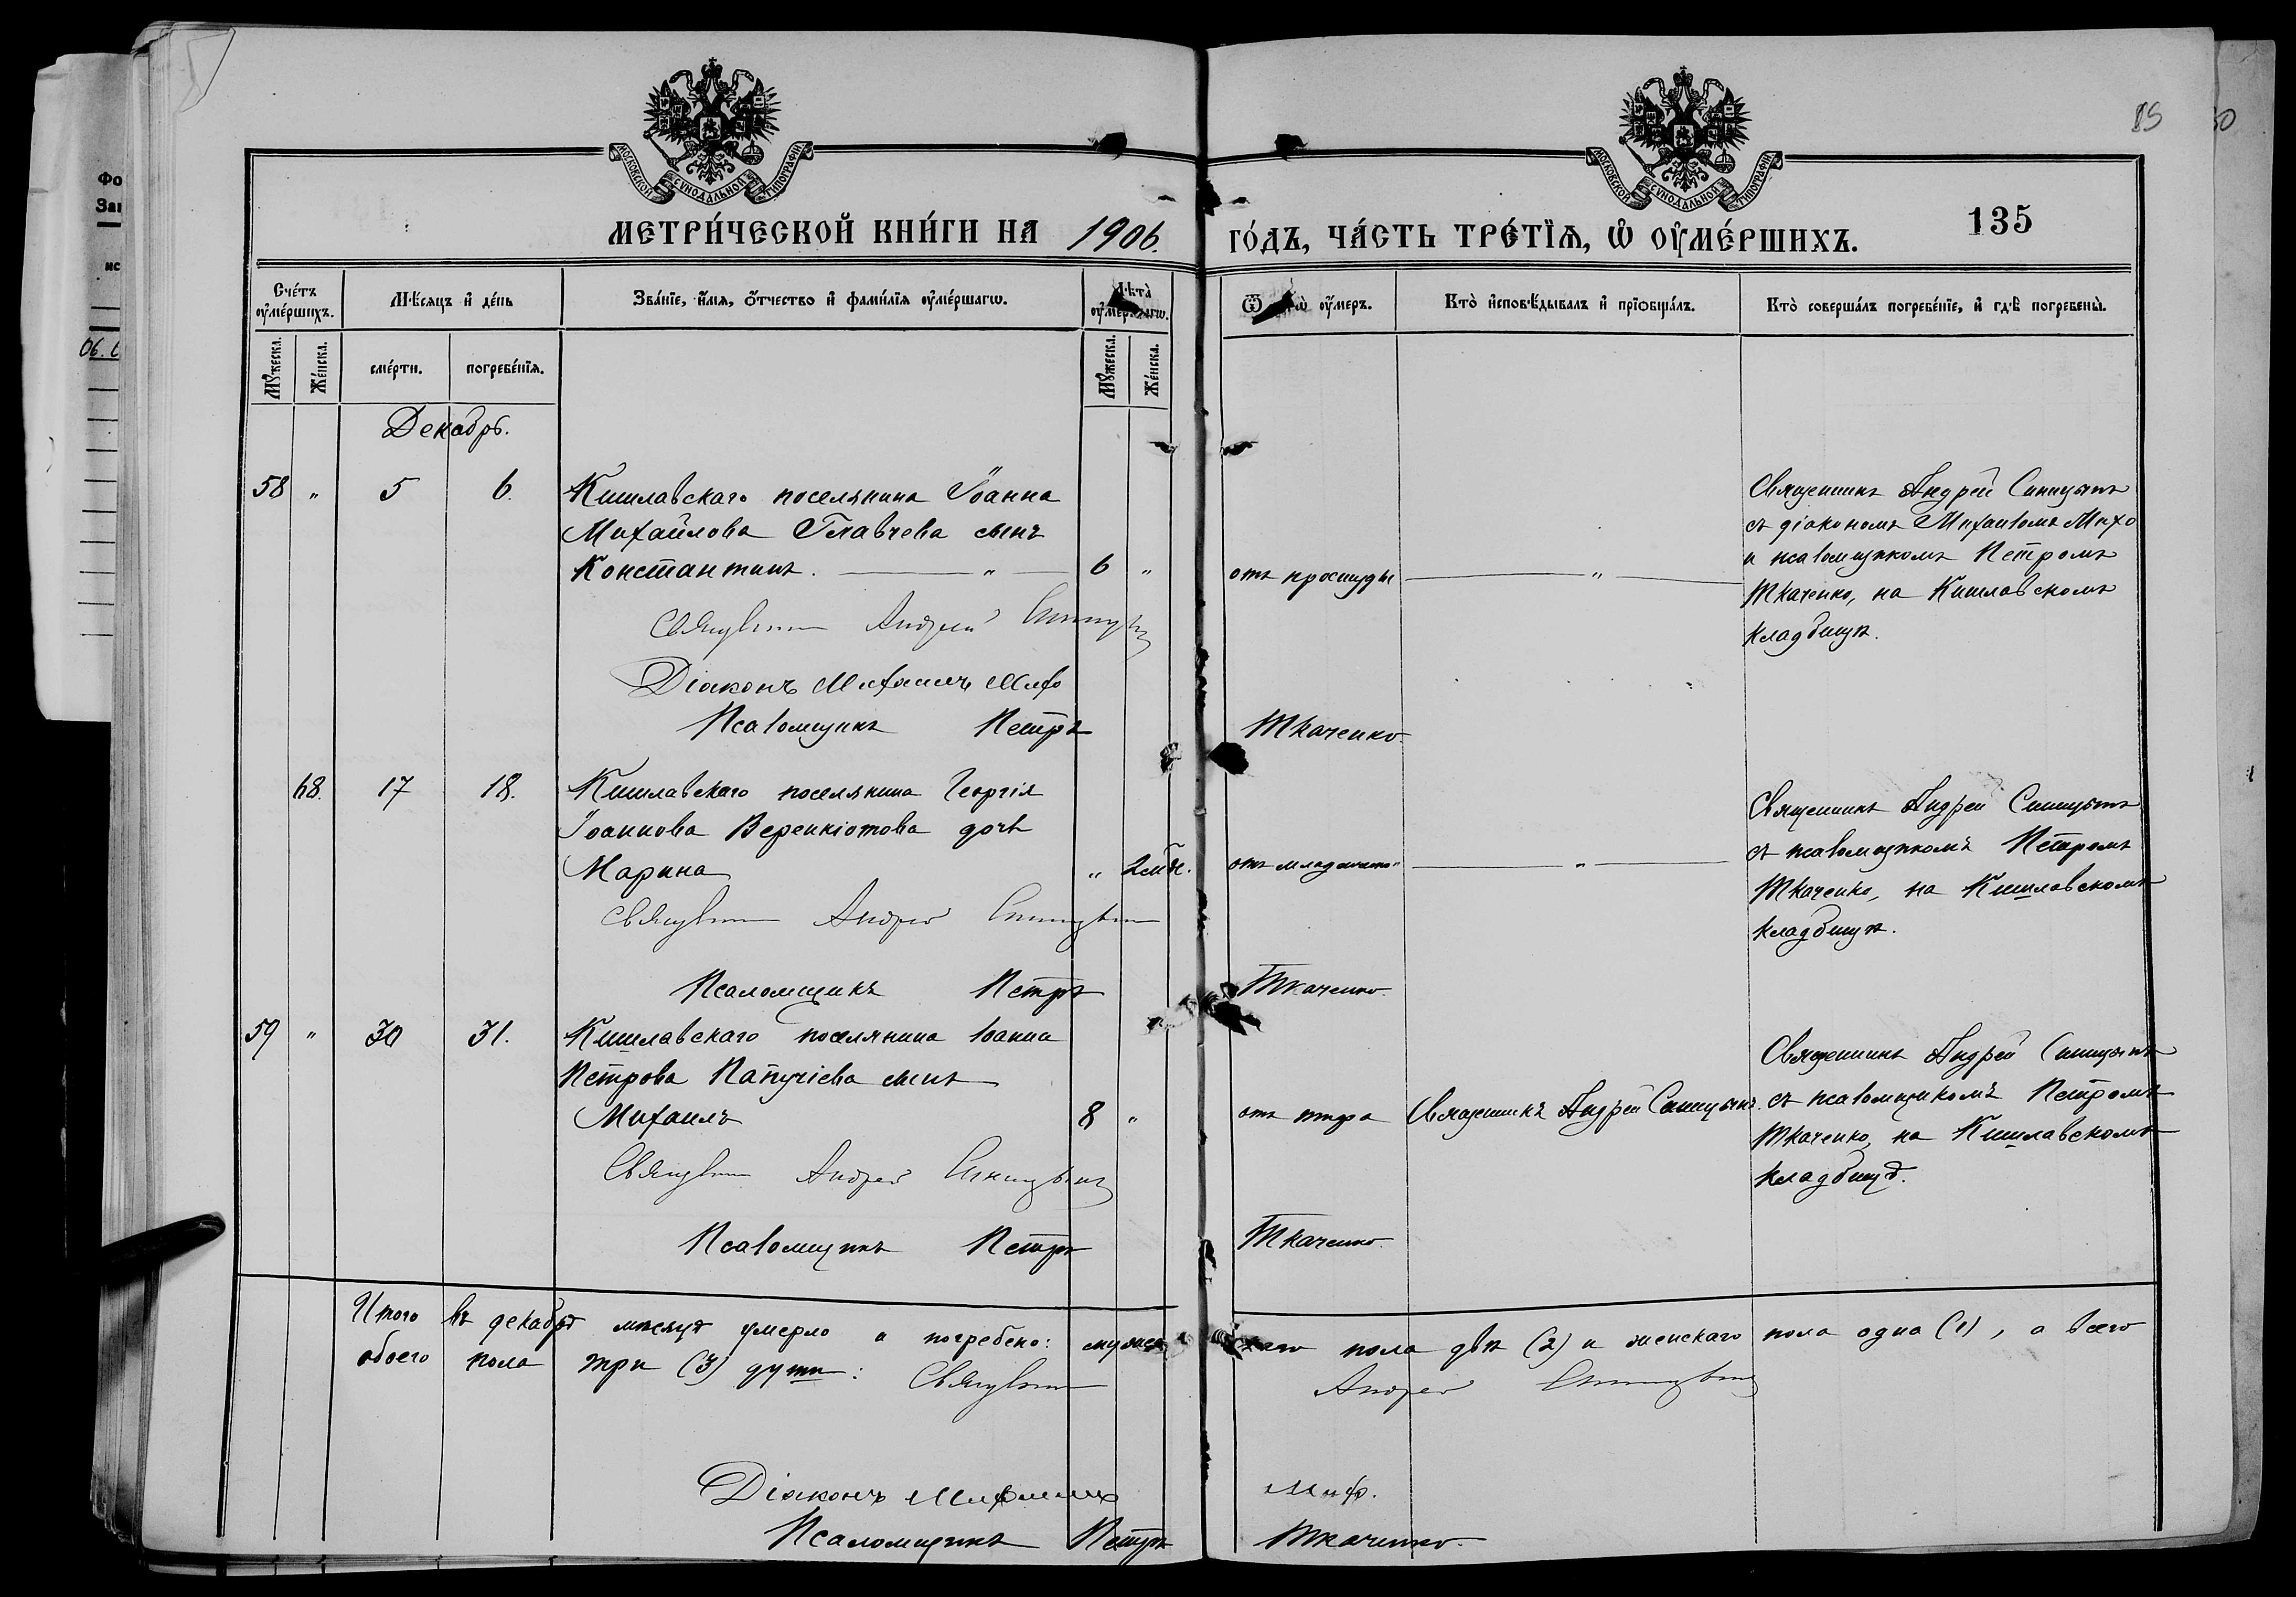 МОСКОВСКОЙ СѴНОДАЛЬНОЙ ТИПОГРАФІИ
МОСКОВСКОЙ СѴНОДАЛЬНОЙ ТИПОГРАФІИ
85
МЕТРИ́ЧЕСКОЙ КНИ́ГИ НА 1906. ГО́ДЪ, ЧА́СТЬ ТРЕ́ТІѦ, Ѡ ОУ҆МЕ́РШИХЪ.
135
Сче́тъ оу҆ме́ршихъ.
Мѣ́сяцъ и҆ де́нь
Зва́нїе, и҆́мя, ѻ҆́тчество и҆ фами́лїя оу҆ме́ршагѡ.
Лѣта̀
Ѿ оу҆́меръ.
Кто̀ и҆сповѣ́дывалъ и҆ прїѡбща́лъ.
Кто̀ соверша́лъ погребе́нїе, и҆ гдѣ̀ погребены̀.
Му́жеска.
Же́нска.
сме́рти.
погребе́нїя.
Му́жеска.
Же́нска.
Декабрь.
58 " 5 6.
Кишлавскаго поселянина Іоанна
Михайлова Главчева сынъ
Константинъ. — " 6 "
отъ простуды — " —
Священникъ Андрей Синицынъ
съ діакономъ Михаиломъ Михо
и псаломщикомъ Петромъ
Ткаченко, на Кишлавскомъ
кладбищѣ.
Священникъ Андрей Синицынъ
Діаконъ Михаилъ Михо
Псаломщикъ Петръ Ткаченко.
68. 17 18.
Кишлавскаго поселянина Георгія
Іоаннова дочь
Марина " 2
отъ — " —
Священникъ Андрей Синицынъ
съ псаломщикомъ Петромъ
Ткаченко, на Кишлавскомъ
кладбищѣ.
Священникъ Андрей Синицынъ
Псаломщикъ Петръ Ткаченко.
59 " 30 31.
Кишлавскаго поселянина Іоанна
Петрова Папучіева сынъ
Михаилъ 8 "
отъ тифа
Священникъ Андрей Синицынъ.
Священникъ Андрей Синицынъ
съ псаломщикомъ Петромъ
Ткаченко, на Кишлавскомъ
кладбищѣ.
Священникъ Андрей Синицынъ
Псаломщикъ Петръ Ткаченко.
Итого въ декабрѣ мѣсяцѣ умерло и погребено: мужескаго пола двѣ (2) и женскаго пола одна (1), а всего
обоего пола три (3) души: Священникъ Андрей Синицынъ
Діаконъ Михаилъ Михо.
Псаломщикъ Петръ Ткаченко.